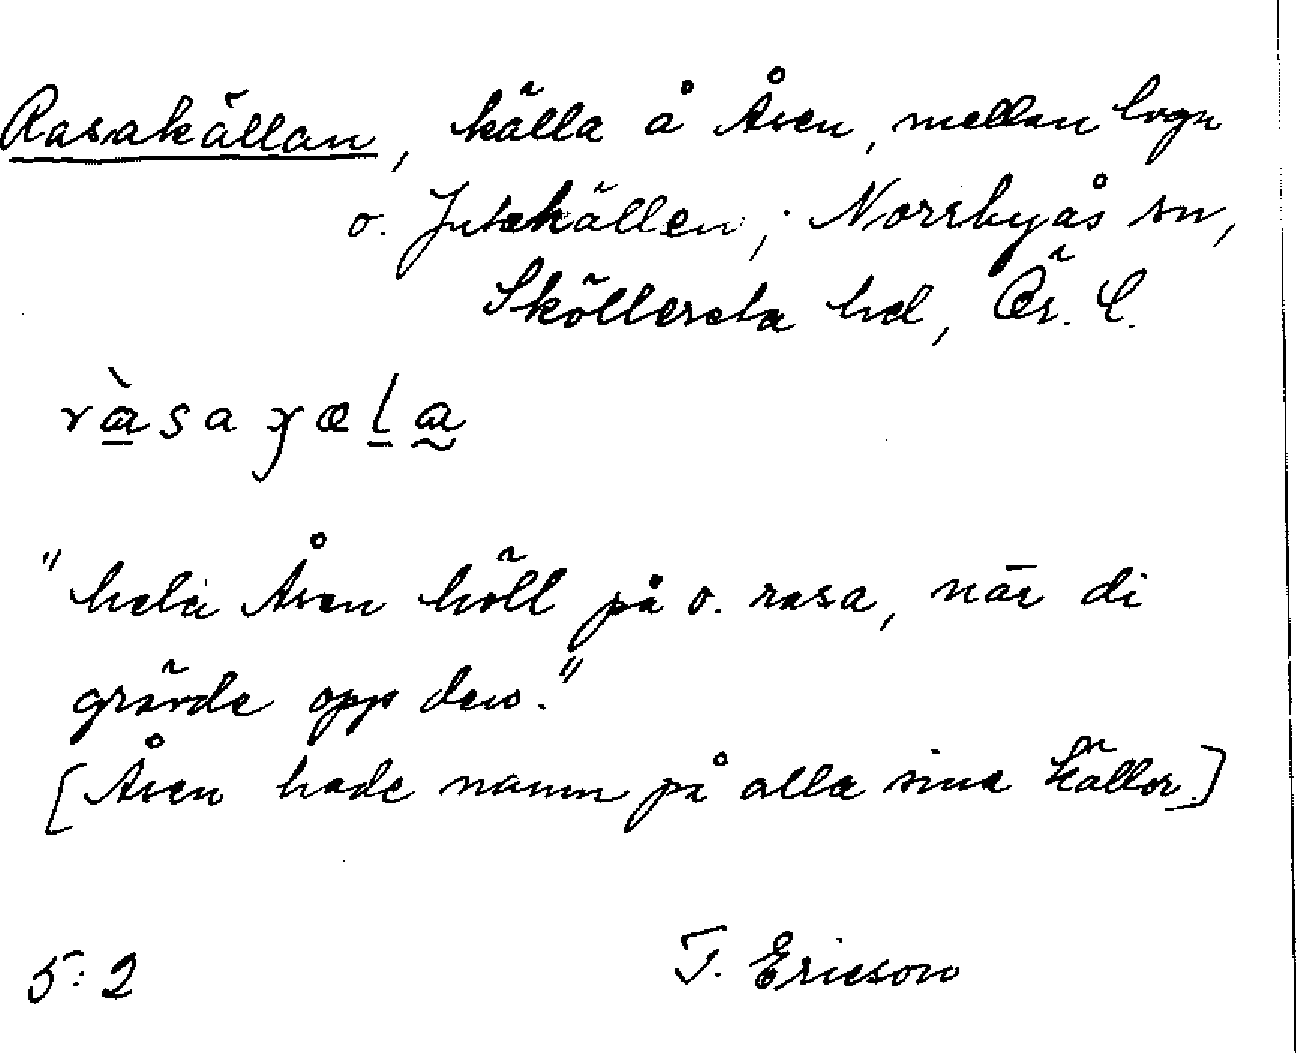 Rasakällan, källa å Åsen, mellan byn
o. Jutekällen; Norrbyås sn,
Sköllersta hd, Ör. l.
ràsaɣæla
"hela Åsen höll på o. rasa, när di
grävde opp den."
[Åsen hade namn på alla sina källor.]
5:2 T. Ericson